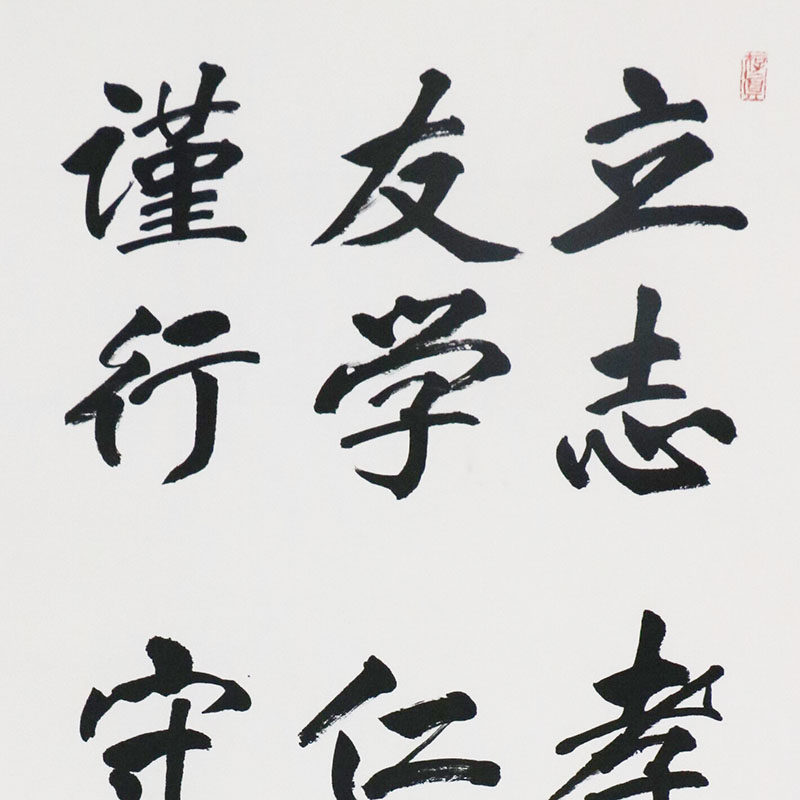 立志 孝
友学 仁
谨行 守